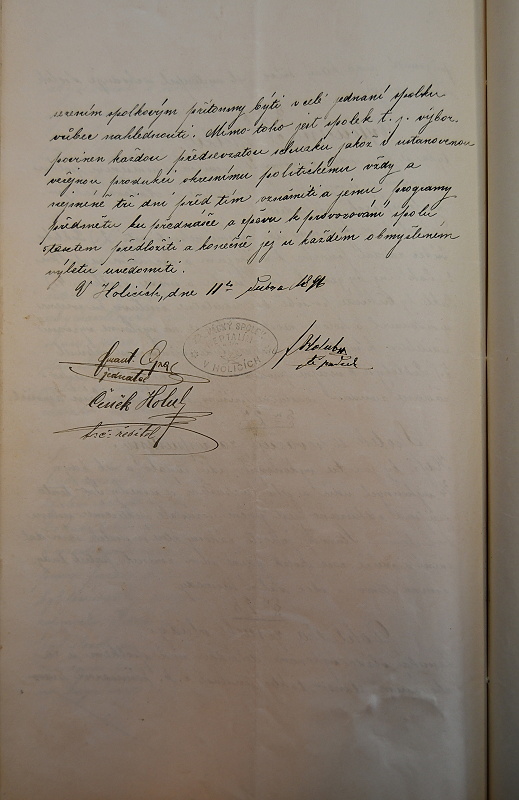 uzením spolkovým přítomny býti v celé jednaní spolku
vůbec nahlednouti. Mimo toho jest spolek t. j. výbor
povinen každou předsevzatou schůzku jakož i ustanovenou
veřejnou produkci okresímu politickému vždy a
nejméně tří dní před tím oznámiti a jemu programy
předmětu ku přednášce a zpěvu k provozování spolu
s textem předložiti a konečně jej u každém obmýšleném
výletu uvědomiti.
V Holicích, dne 11ho dubna 1896
SPOLEK
V HOLICÍCH
jednatel
Čeněk Holub
ředitel
Holub